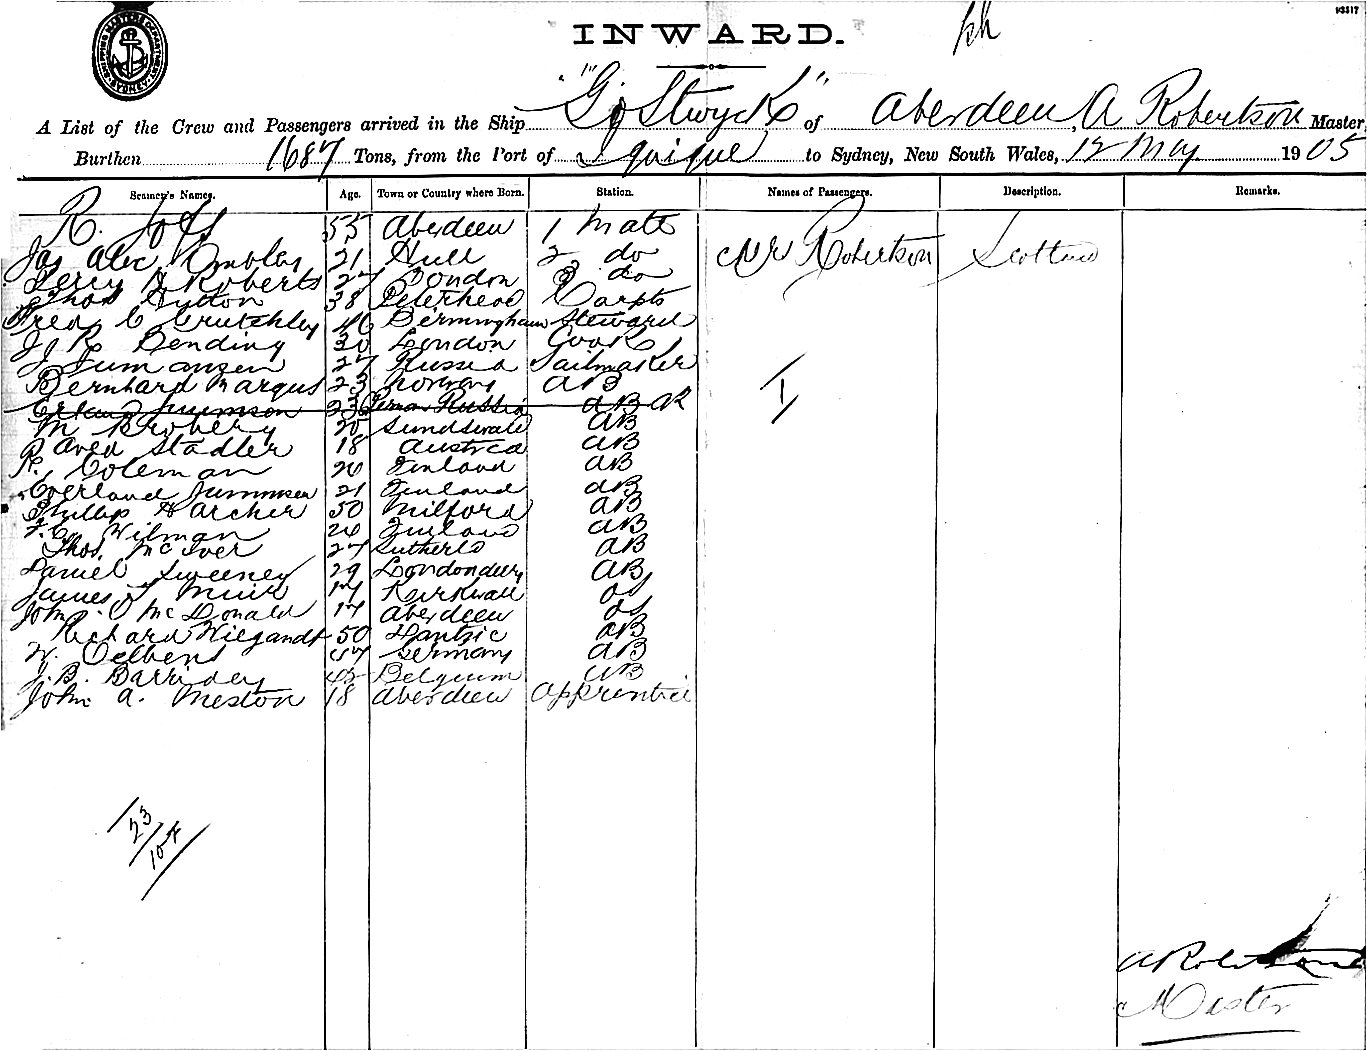 93517
INWARD.
SHIPPING MASTER'S DEPARTMENT SYDNEY
A List of the Crew and Passengers arrived in the Ship "Gostwyck" of Aberdeen, A Robertson Master
Burthen 1687 Tons, from the Port of Iquique to Sydney, New South Wales, 12 May 1905
Seamen's Names. Age. Town or Country where Born. Station. Names of Passengers. Description. Remarks.
R. 55 Aberdeen 1 Mate
Jas Alec 21 Hull 2 do Mr Robertson Scotland
Percy Roberts 27 London 3 do
Thos Hutton 38 Peterhead Carptr
Fred C Crutchley 46 Birmingham Steward
J R Bending 30 London Cook
J Jumansen 27 Russia Sailmaker
Bernhard Margus 23 Norway AB
23 Russia AB
M 20 Sundswall AB
R. Aved Stadler 18 Austria AB
R. Coleman 26 Finland AB
Overland Jummsen 21 Finland AB
Phillip H Archer 50 Milford AB
Wilman 26 AB
Thos. McIver 27 Sutherld AB
Daniel Sweeney 29 Londonderry AB
James J Muir 17 Kirkwall OS
John O McDonald 17 Aberdeen OS
Richard Wiegandt 50 Dantzic AB
W. Oelbens 57 Germany AB
J. B. Barriday 45 Belgium AB
John A. Meston 18 Aberdeen Apprentice
I
23
104
A Robertson
Master